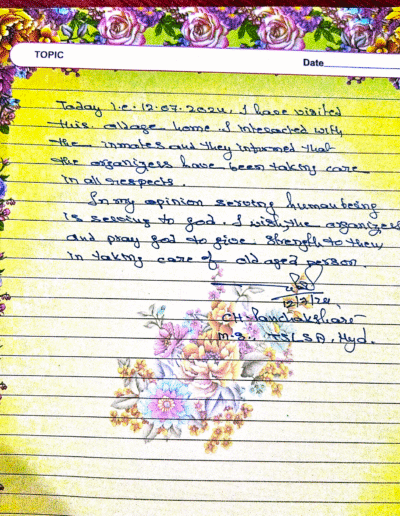 TOPIC
Date
Today i.e. 12.07.2024, I have visited
this oldage home. I interacted with
the inmates and they informed that
the organizers have been taking care
in all respects.
In my opinion serving human being
is serving to god. I wish, the organizers
and pray god to give strength to them
in taking care of old aged person.
12/7/24,
CH. Panchakshari
M.S., TSLSA, Hyd.